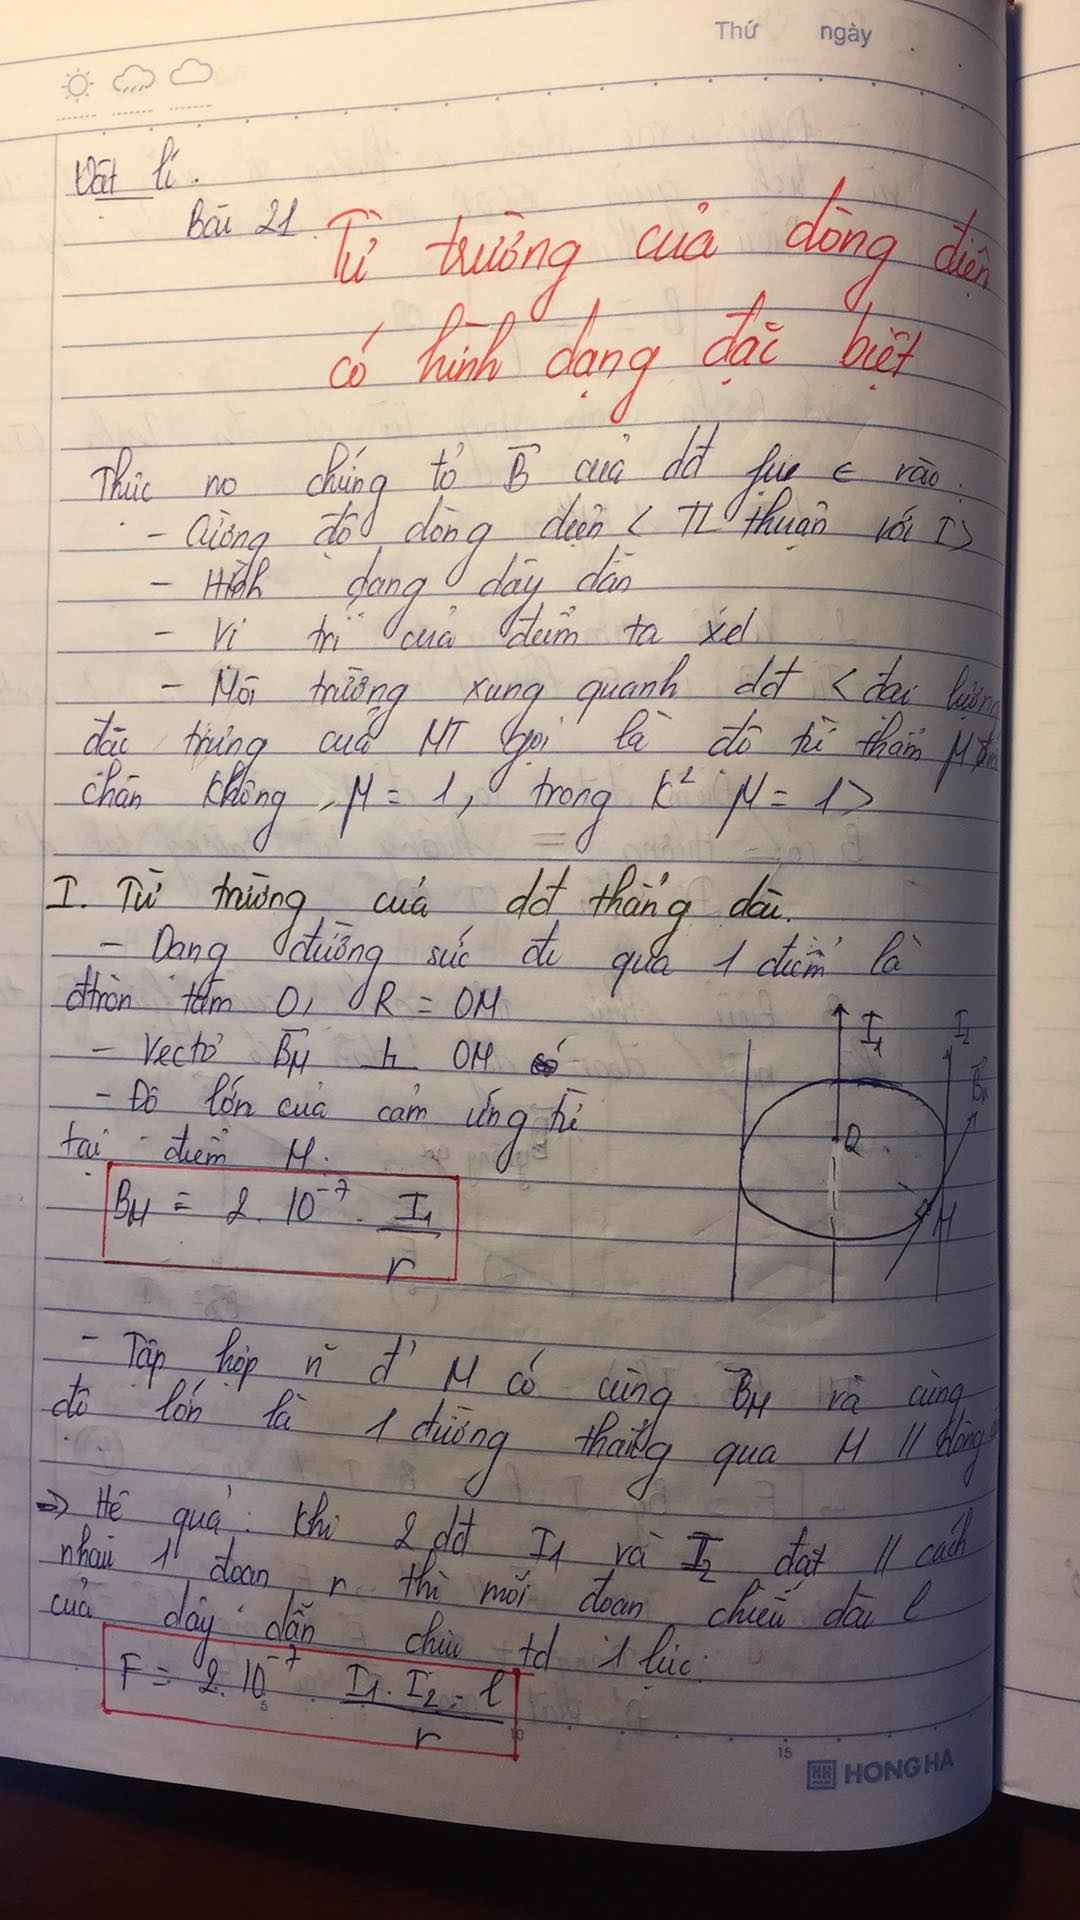 Thứ ngày
Vật lí.
Bài 21.
Từ trường của dòng điện
có hình dạng đặc biệt
Thực no chứng tỏ B của dđ ∈ vào:
- Cường độ dòng điện < TL thuận với I >
- Hình dạng dây dẫn
- Vị trí của điểm ta xét
- Môi trường xung quanh dđ < đại lượng
đặc trưng của MT gọi là độ từ thẩm μ
chân không, μ = 1, trong k² μ = 1 >
I. Từ trường của dđ thẳng dài.
- Dạng đường sức đi qua 1 điểm là
đtròn tâm O, R = OM
- Vectơ B_M ⊥ OM có
- Độ lớn của cảm ứng từ
tại điểm M:
B_M = 2. 10⁻⁷. I₁/r
I₁ I₂
B_M
O
M
- Tập hợp n~ đ' M có cùng B_M và cùng
độ lớn là 1 đường thẳng qua M // dòng
=> Hệ quả: Khi 2 dđ I₁ và I₂ đặt // cách
nhau 1 đoạn r thì mỗi đoạn chiều dài l
của dây dẫn chịu td 1 lực:
F = 2. 10⁻⁷. I₁. I₂. l/r
5 10 15
HONG HA